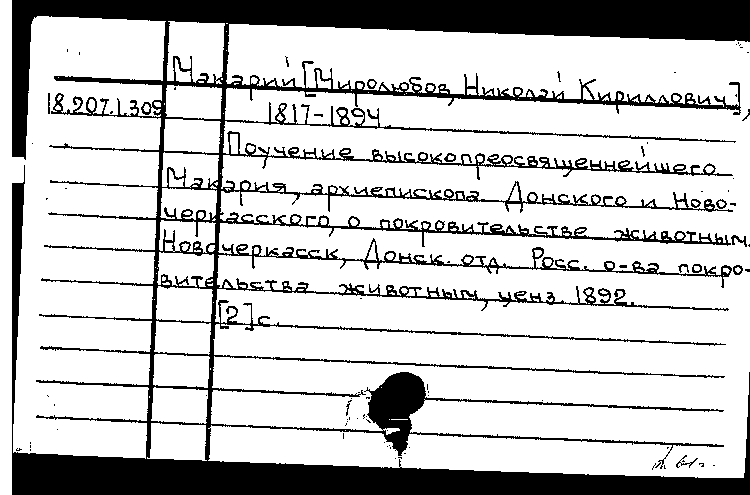 Макарий [Миролюбов, Николай Кириллович],
18.207.1.309 1817-1894.
Поучение высокопреосвященнейшего
Макария, архиепископа Донского и Ново-
черкасского, о покровительстве животным.
Новочеркасск, Донск. отд. Росс. о-ва покро-
вительства животным, ценз. 1892.
[2] с.